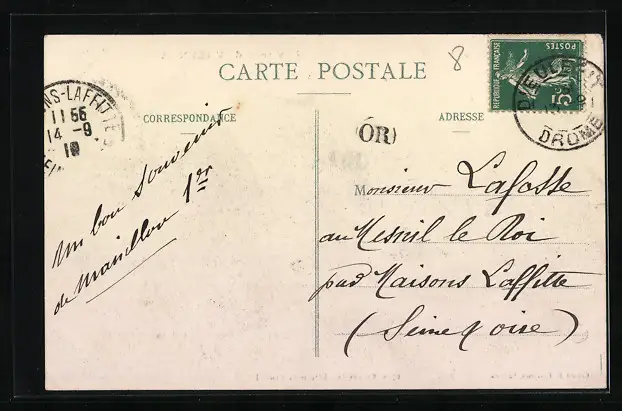 8
CARTE POSTALE
CORRESPONDANCE
ADRESSE
RÉPUBLIQUE FRANÇAISE
POSTES
5c
DIEULEFIT
DROME
NS-LAFFITTE
11 55
14 -9
OR
Un bon souvenir
de Marsillon 1er
Monsieur Lafosse
au Mesnil le Roi
par Maisons Laffitte
(Seine & Oise)